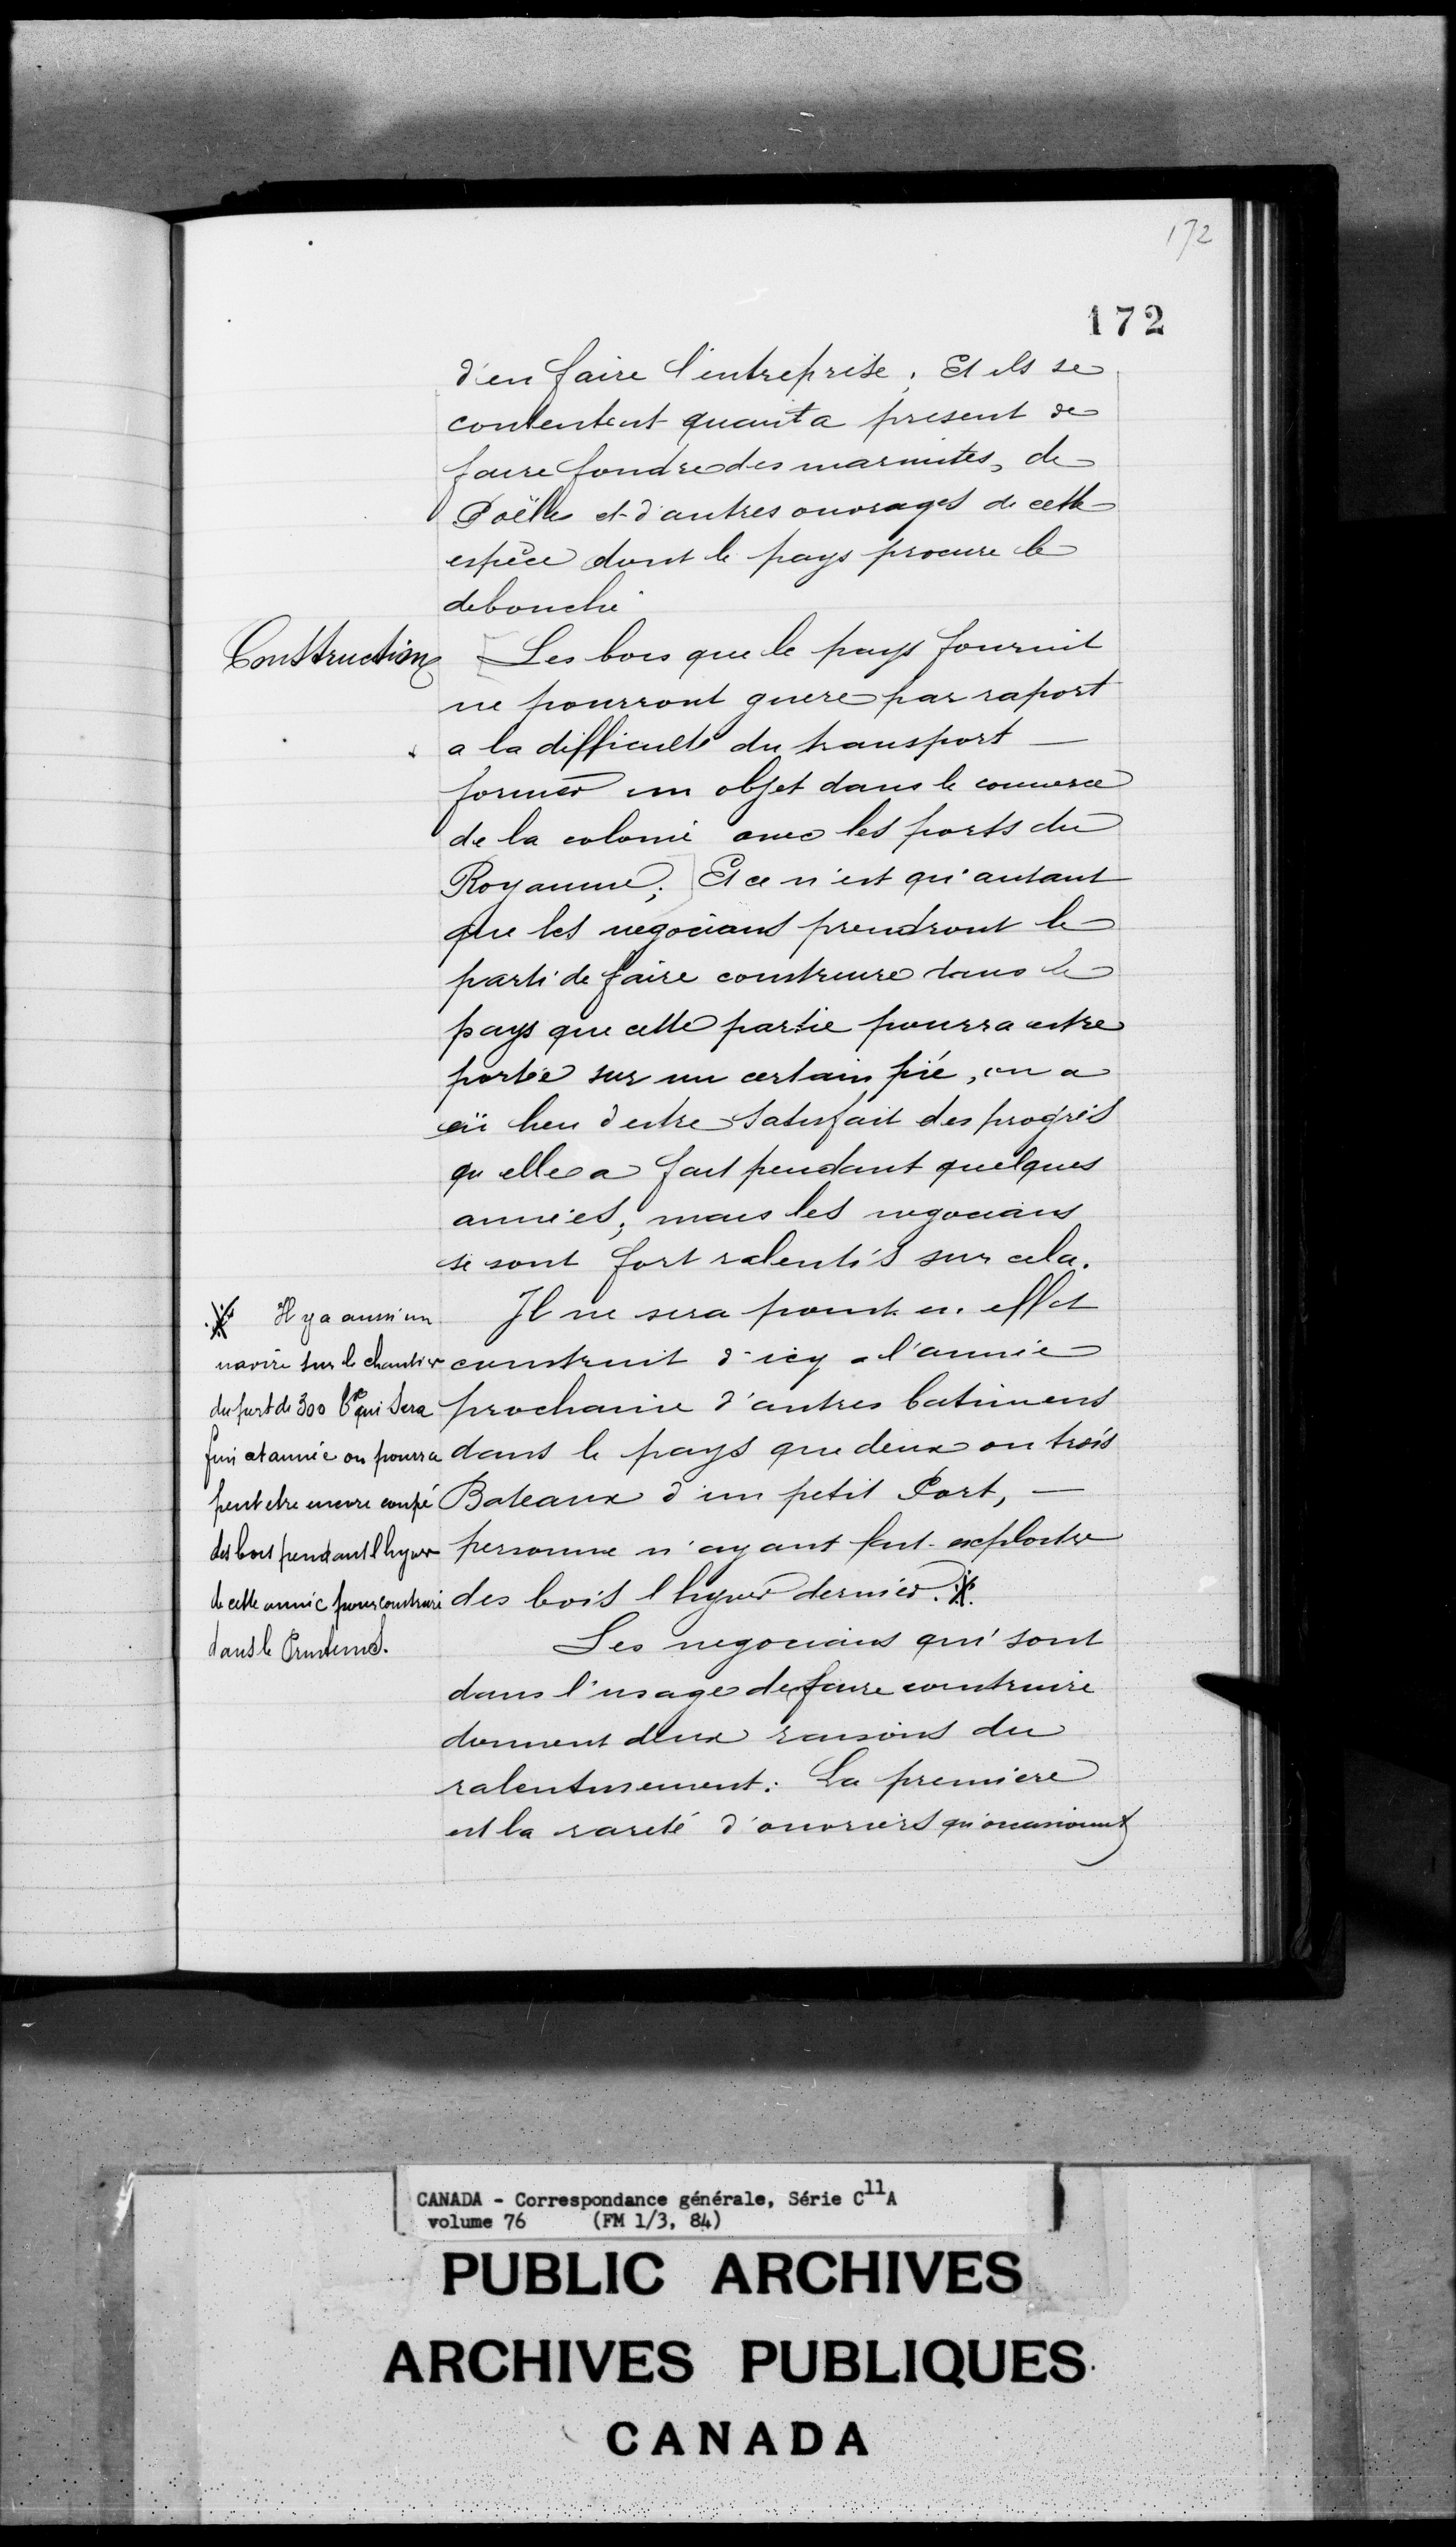 172
172
d'en faire l'entreprise. Et ils se
contentent quant a present de
faire fondre des marmites, de
Poëlles et d'autres ouvrages de cette
espèce dont le pays procure le
debouché
Construction
Les bois que le pays fournit
ne pourront guere par raport
a la difficulté du transport
former un objet dans le commerce
de la colonie avec les ports du
Royaume; Et ce n'est qu'autant
que les negocians prendront le
parti de faire construire dans le
pays que cette partie pourra estre
portée sur un certain pié, on a
eü lieu d'estre satisfait des progrès
qu'elle a fait pendant quelques
années; mais les negocians
se sont fort ralentis sur cela.
Il ne sera point en effet
construit d'icy a l'année
prochaine d'autres batimens
dans le pays que deux ou trois
Bateaux d'un petit Port,
personne n'ayant fait exploiter
des bois l'hyver dernier. ※
※ Il y a aussi un
navire sur le chantier
du port de 300 tx qui sera
fini cet année on pourra
peut etre encore coupé
des bois pendant l'hyver
de cette année pour construire
dans le Printems.
Les negocians qui sont
dans l'usage de faire construire
donnent deux raisons du
ralentissement: La premiere
est la rareté d'ouvriers qu'occasionnent
CANADA - Correspondance générale, Série C11A
volume 76 (FM 1/3, 84)
PUBLIC ARCHIVES
ARCHIVES PUBLIQUES
CANADA